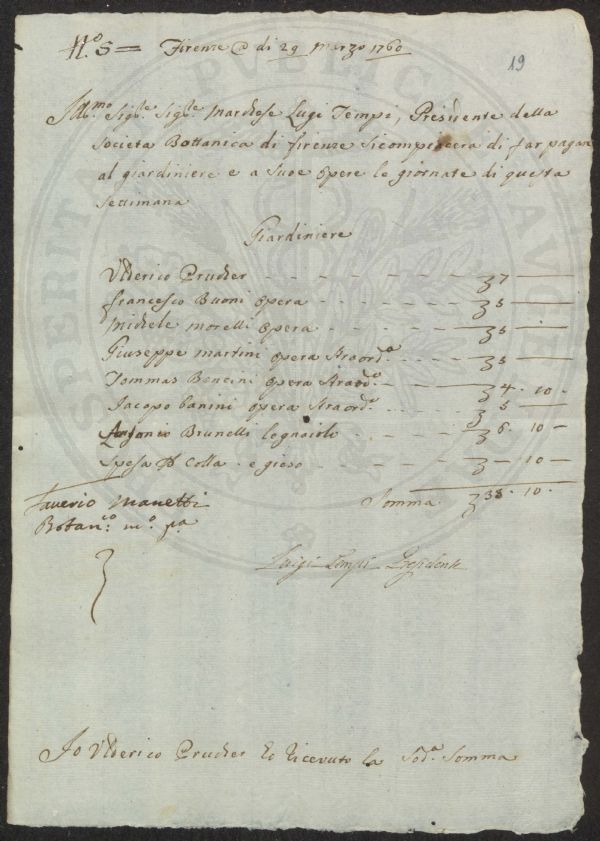 N.º 5 = Firenze @ di 29 Marzo 1760
19
Ill.mo Sig.re Sig.re Marchese Luigi Tempi, Presidente della
Societa Bottanica di firenze si compiacera di far pagare
al giardiniere e a Suoe opere le giornate di questa
Settimana
Giardiniere
Ulderico Prucher - - - - - - - 7 —
francesco Buoni opera - - - - - 5 —
Michele morelli opera - - - - - 5 —
Giuseppe martini opera Straord.a - - 5 —
Tommas Bencini opera Straord.a - - 4 . 10 -
Jacopo Vanini opera Straord.a - - 5 —
Antonio Brunelli legnaiolo - - 6 . 10 —
Spesa di Colla - e gieso - - - — 10 —
Saverio Manetti
Somma 38 . 10 .
Botan.co m.o p.a
Luigi Tempi Presidente
SPERITAS PUBLICA AUGE
Io Ulderico Prucher ho ricevuto la Sod.a Somma